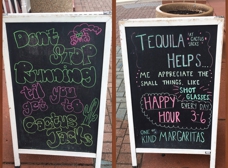 Dont
STOP
Running
'til you
get to
Cactus
Jacks
TEQUILA
HELPS...
ME APPRECIATE THE
SMALL THINGS LIKE
SHOT
GLASSES
EVERY DAY
HAPPY
HOUR 3-6
ONE OF
KIND MARGARITAS